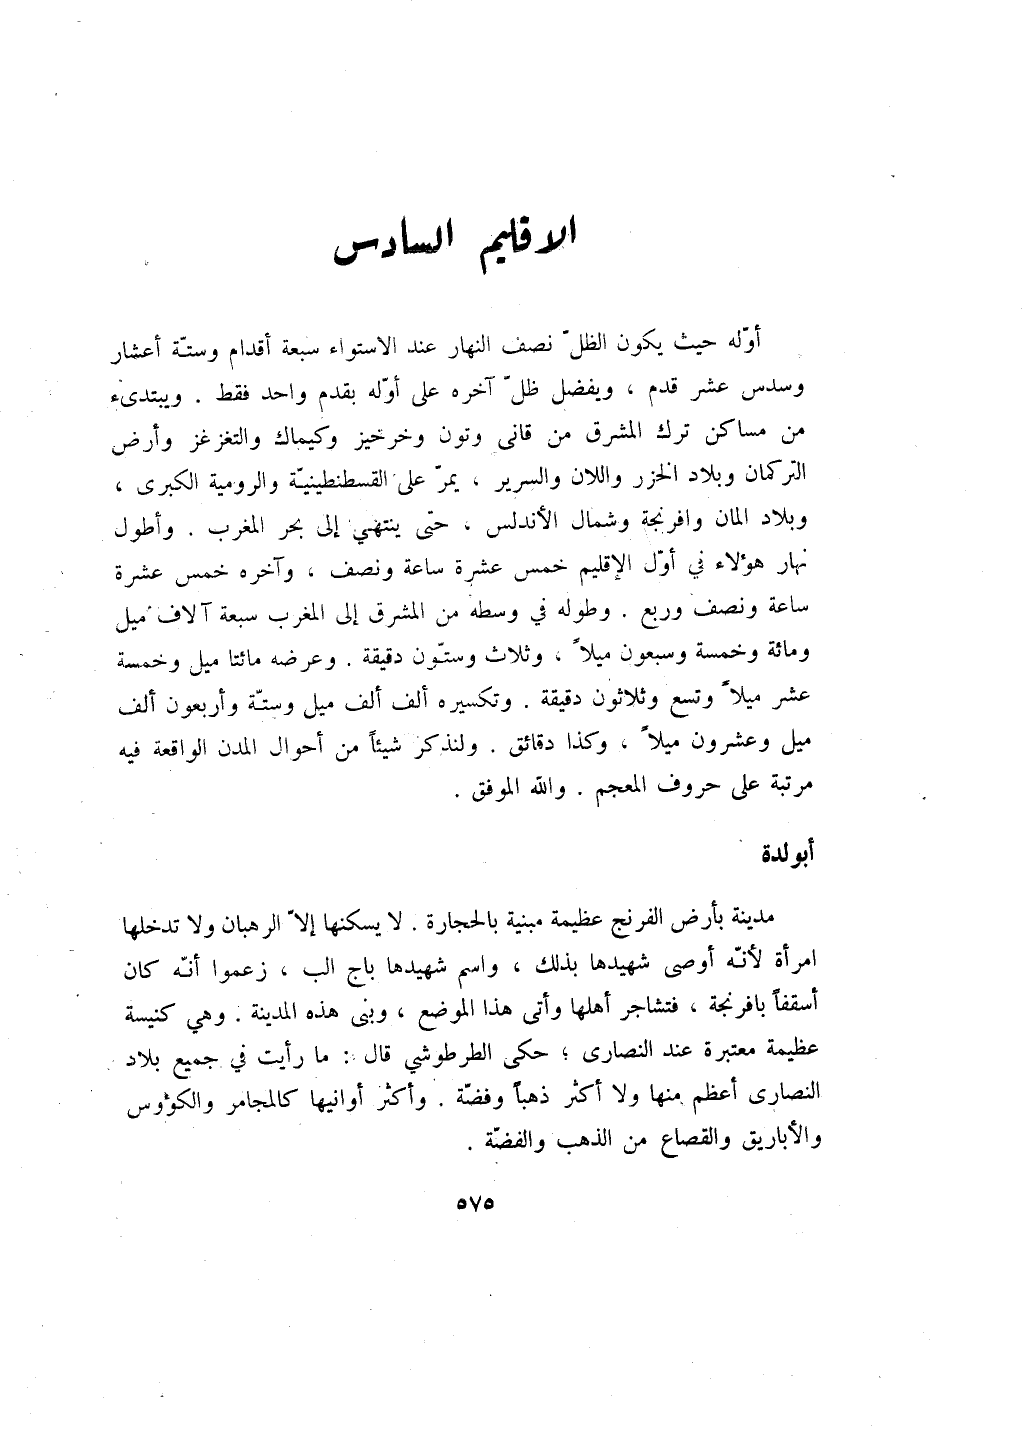 الاقليم السادس
أوّله حيث يكون الظلّ نصف النهار عند الاستواء سبعة أقدام وستّة أعشار
وسدس عشر قدم ، ويفضل ظلّ آخره على أوّله بقدم واحد فقط . ويبتدىء
من مساكن ترك المشرق من قانى وتون وخرخيز وكيماك والتغزغز وأرض
التركمان وبلاد الخزر واللان والسرير ، يمرّ على القسطنطينيّة والرومية الكبرى ،
وبلاد المان وافرنجة وشمال الأندلس ، حتّى ينتهي إلى بحر المغرب . وأطول
نهار هؤلاء في أوّل الإقليم خمس عشرة ساعة ونصف ، وآخره خمس عشرة
ساعة ونصف وربع . وطوله في وسطه من المشرق إلى المغرب سبعة آلاف ميل
ومائة وخمسة وسبعون ميلاً ، وثلاث وستّون دقيقة . وعرضه مائتا ميل وخمسة
عشر ميلاً وتسع وثلاثون دقيقة . وتكسيره ألف ألف ميل وستّة وأربعون ألف
ميل وعشرون ميلاً ، وكذا دقائق . ولنذكر شيئاً من أحوال المدن الواقعة فيه
مرتبة على حروف المعجم . والله الموفق .
أبولدة
مدينة بأرض الفرنج عظيمة مبنية بالحجارة . لا يسكنها إلاّ الرهبان ولا تدخلها
امرأة لأنّه أوصى شهيدها بذلك ، واسم شهيدها باج الب ، زعموا أنّه كان
أسقفاً بافرنجة ، فتشاجر أهلها وأتى هذا الموضع ، وبنى هذه المدينة . وهي كنيسة
عظيمة معتبرة عند النصارى ؛ حكى الطرطوشي قال : ما رأيت في جميع بلاد
النصارى أعظم منها ولا أكثر ذهباً وفضّة . وأكثر أوانيها كالمجامر والكؤوس
والأباريق والقصاع من الذهب والفضّة .
٥٧٥